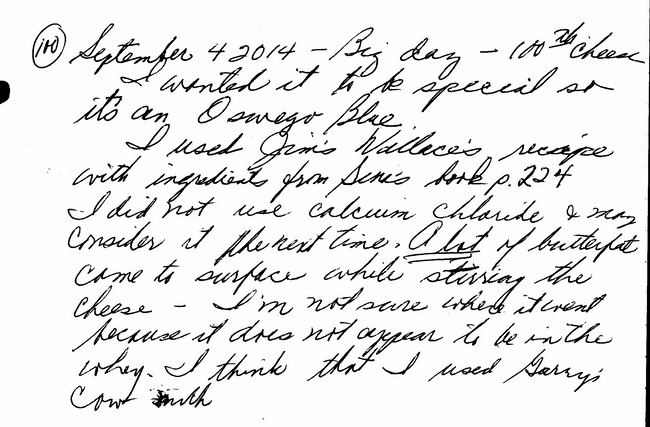 100 September 4 2014 - Big day - 100th cheese
I wanted it to be special so
it's an Oswego Blue
I used Jim's Wallace's recipe
with ingredients from Gene's book p.224
I did not use calcium chloride & may
consider it the next time. A lot of butterfat
came to surface while stirring the
cheese - I'm not sure where it went
because it does not appear to be in the
whey. I think that I used Garry's
cow milk